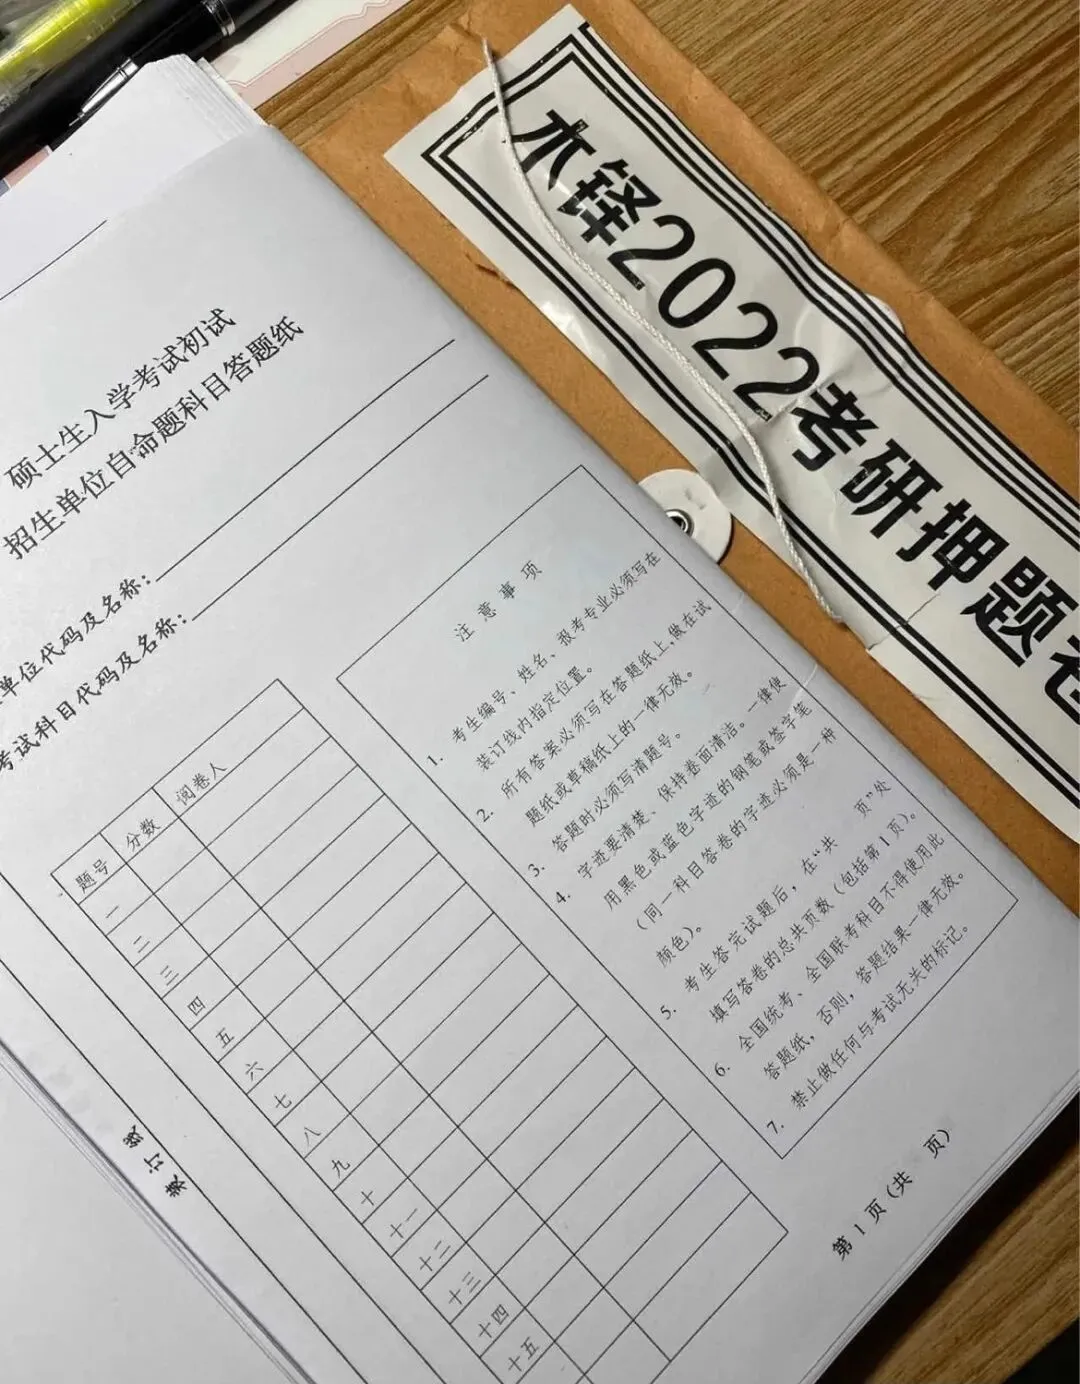 木铎2022考研押题卷
硕士生入学考试初试
招生单位自命题科目答题纸
单位代码及名称：
考试科目代码及名称：
题号 分数 阅卷人
一
二
三
四
五
六
七
八
九
十
十一
十二
十三
十四
十五
注意事项
1. 考生编号、姓名、报考专业必须写在
装订线内指定位置。
2. 所有答案必须写在答题纸上，做在试
题纸或草稿纸上的一律无效。
3. 答题时必须写清题号。
4. 字迹要清楚、保持卷面清洁。一律使
用黑色或蓝色字迹的钢笔或签字笔
（同一科目答卷的字迹必须是一种
颜色）。
5. 考生答完试题后，在“共 页”处
填写答卷的总共页数（包括第1页）。
6. 全国统考、全国联考科目不得使用此
答题纸，否则，答题结果一律无效。
7. 禁止做任何与考试无关的标记。
装订线
第 1 页（共 页）